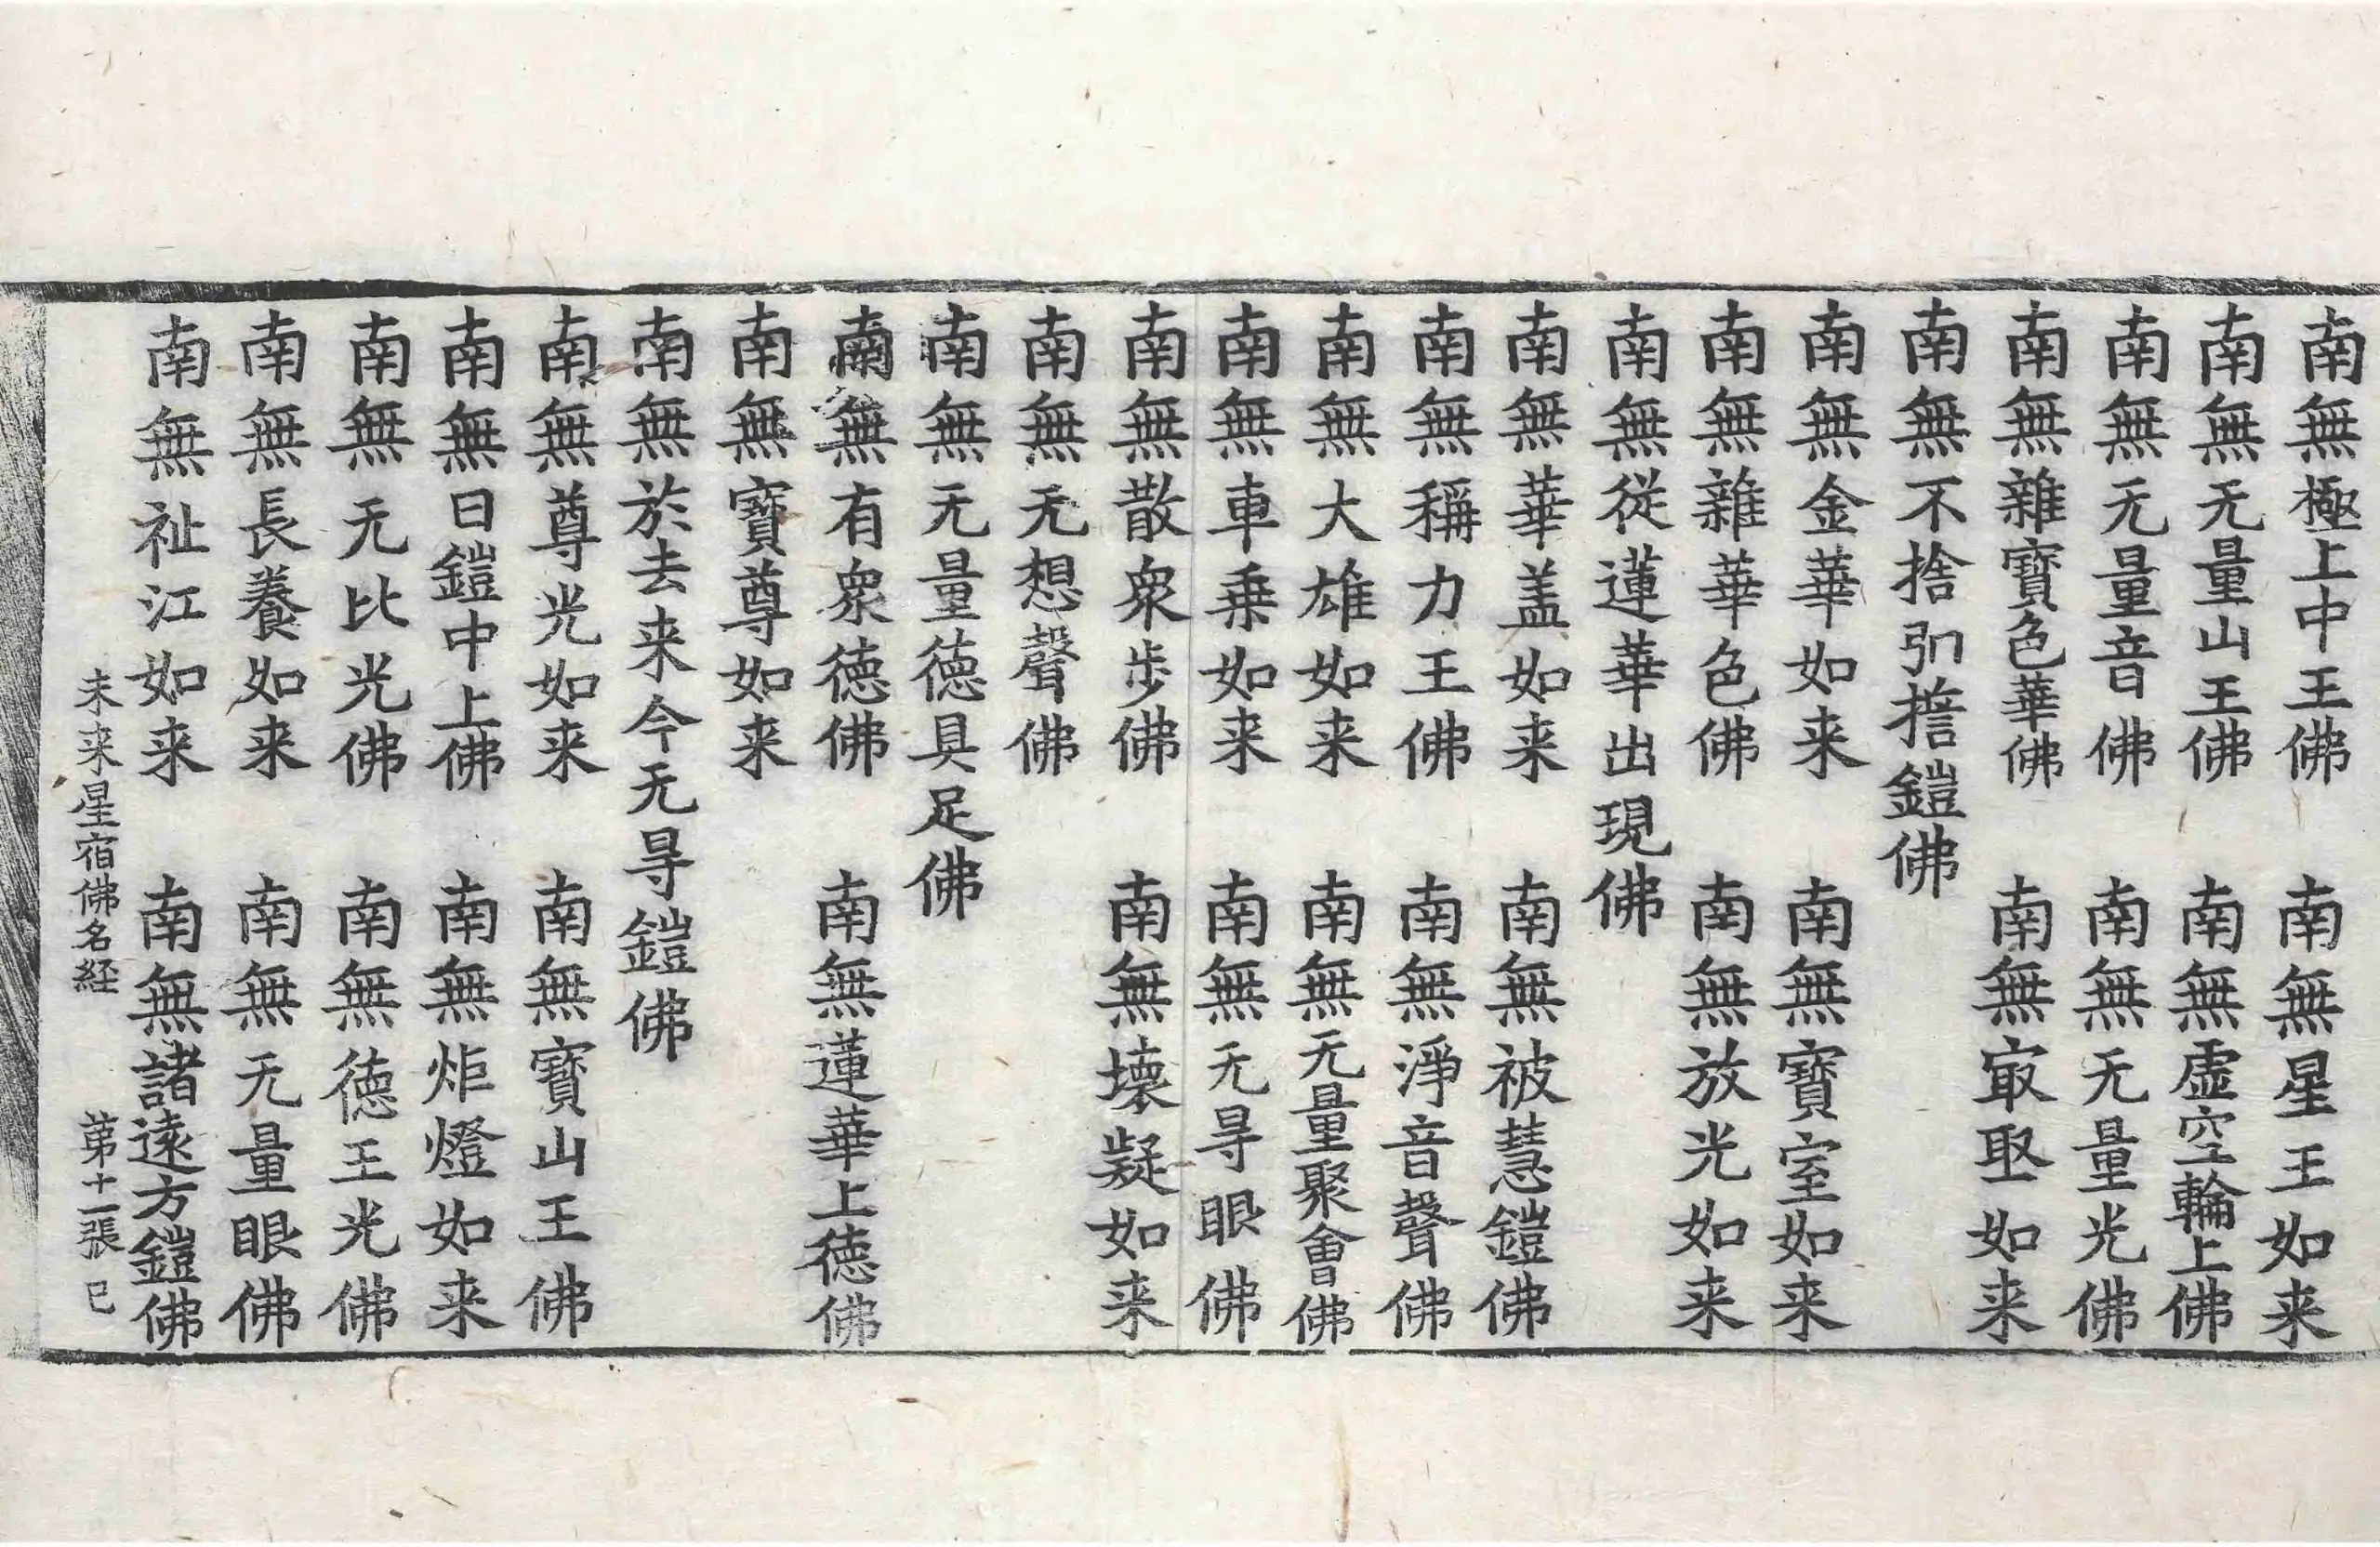 南無極上中王佛　南無星王如来
南無无量山王佛　南無虚空輪上佛
南無无量音佛　南無无量光佛
南無雜寶色華佛　南無㝡𦔳如来
南無不捨弘擔鎧佛
南無金華如来　南無寶室如来
南無雜華色佛　南無放光如来
南無従蓮華出現佛
南無華盖如来　南無被慧鎧佛
南無稱力王佛　南無淨音聲佛
南無大雄如来　南無无量聚會佛
南無車乗如来　南無无㝵眼佛
南無散衆歩佛　南無壊疑如来
南無无想聲佛
南無无量徳具足佛
南無有衆徳佛　南無蓮華上徳佛
南無寶尊如来
南無於去来今无㝵鎧佛
南無尊光如来　南無寶山王佛
南無日鎧中上佛　南無炬燈如来
南無无比光佛　南無徳王光佛
南無長養如来　南無无量眼佛
南無祉江如来　南無諸遠方鎧佛
未来星宿佛名経　苐十一張　已